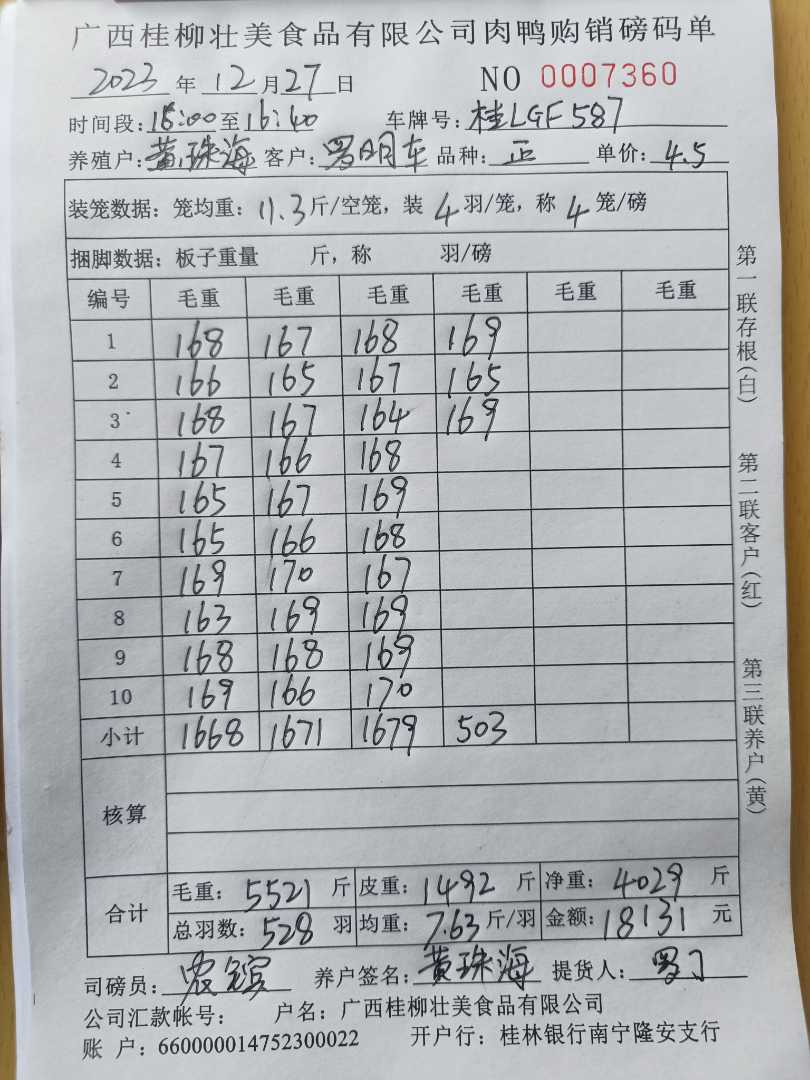 广西桂柳壮美食品有限公司肉鸭购销磅码单
2023 年 12 月 27 日 NO 0007360
时间段: 15:00 至 16:40 车牌号: 桂LGF587
养殖户: 黄珠海 客户: 罗明车 品种: 正 单价: 4.5
装笼数据: 笼均重: 11.3 斤/空笼, 装 4 羽/笼, 称 4 笼/磅
捆脚数据: 板子重量 斤, 称 羽/磅
编号 毛重 毛重 毛重 毛重 毛重 毛重
1 168 167 168 169
2 166 165 167 165
3 168 167 164 169
4 167 166 168
5 165 167 169
6 165 166 168
7 169 170 167
8 163 169 169
9 168 168 169
10 169 166 170
小计 1668 1671 1679 503
核算
合计
毛重: 5521 斤 皮重: 1492 斤 净重: 4029 斤
总羽数: 528 羽 均重: 7.63 斤/羽 金额: 18131 元
司磅员: 农 养户签名: 黄珠海 提货人: 罗
公司汇款帐号: 户名: 广西桂柳壮美食品有限公司
账 户: 660000014752300022 开户行: 桂林银行南宁隆安支行
第一联存根(白)
第二联客户(红)
第三联养户(黄)